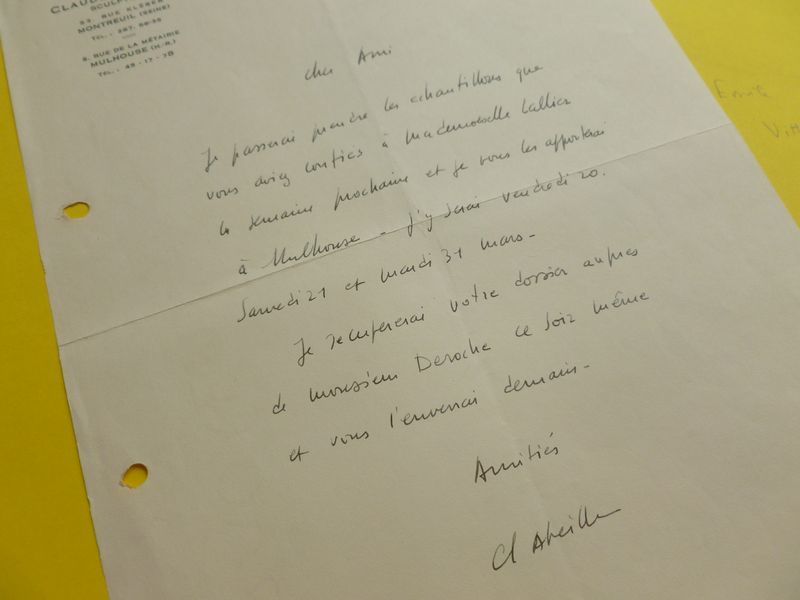 CLAUD
SCULP
53, RUE KLEBER
MONTREUIL (SEINE)
TÉL. : 287. 56-25
8, RUE DE LA MÉTAIRIE
MULHOUSE (H.-R.)
TÉL. : 45-17-78
Cher Ami
Je passerai prendre les echantillons que
vous aviez confiés à Mademoiselle Lallier
la semaine prochaine et je vous les apporterai
à Mulhouse - j'y serai vendredi 20.
Samedi 21 et mardi 31 mars -
Je recupererai votre dossier aupres
de monsieur Deroche ce soir même
et vous l'enverrai demain -
Amitiés
Cl Abeille